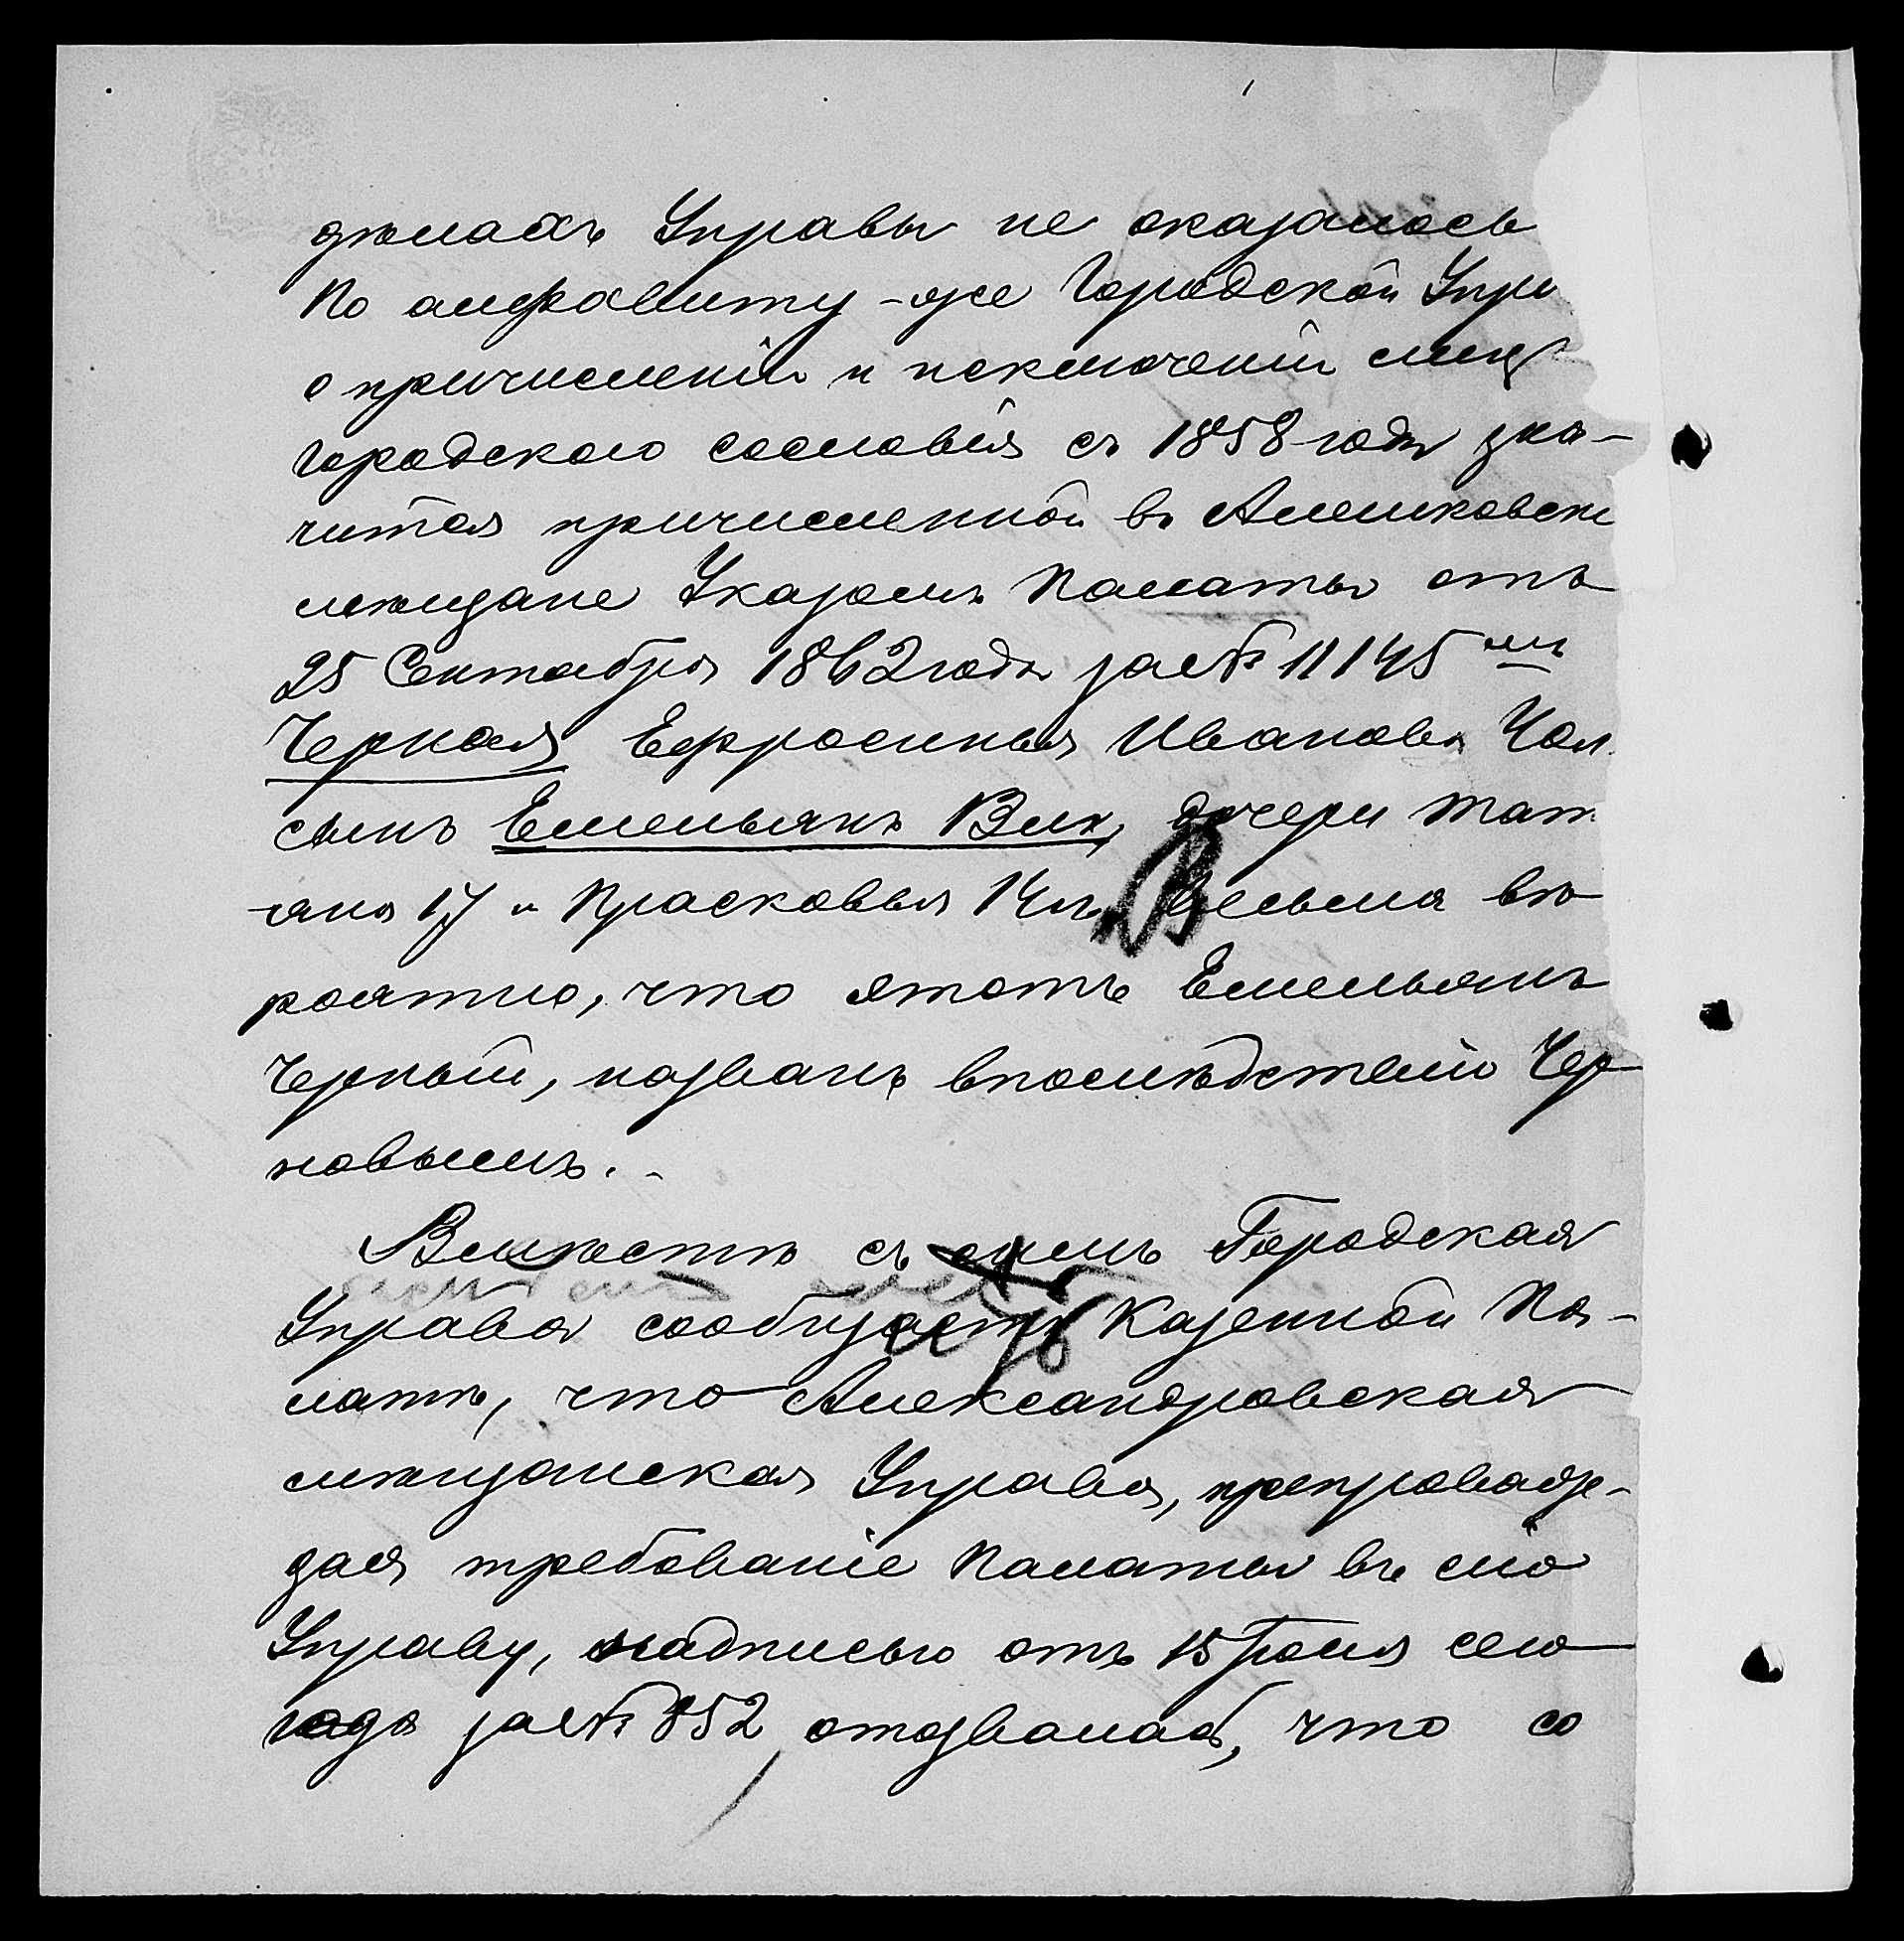 дѣлахъ Управы не оказалось
По алфавиту-же Городской Упр
о причисленіи и исключеніи лицъ
городского сословія съ 1858 года зна-
чится причисленной въ Алешковскі
мѣщане Указомъ Палаты отъ
25 Сентября 1862 года за № 11145 мъ
Черная Ефросинья Иванова
сынъ Емельянъ дочери Тат
яна 17 и Прасковья 14 л. Весьма вѣ
роятно, что этотъ Емельянъ
Черный, названъ впослѣдствіи Чер
новымъ.
Вмѣстѣ съ симъ Городская
Управа сообщаетъ Казенной Па-
латѣ, что Александровская
мѣщанская Управа, препроваж-
дая требованіе Палаты въ сію
Управу, надписью отъ 15 Іюля сего
года за № 852, отозвалась, что со